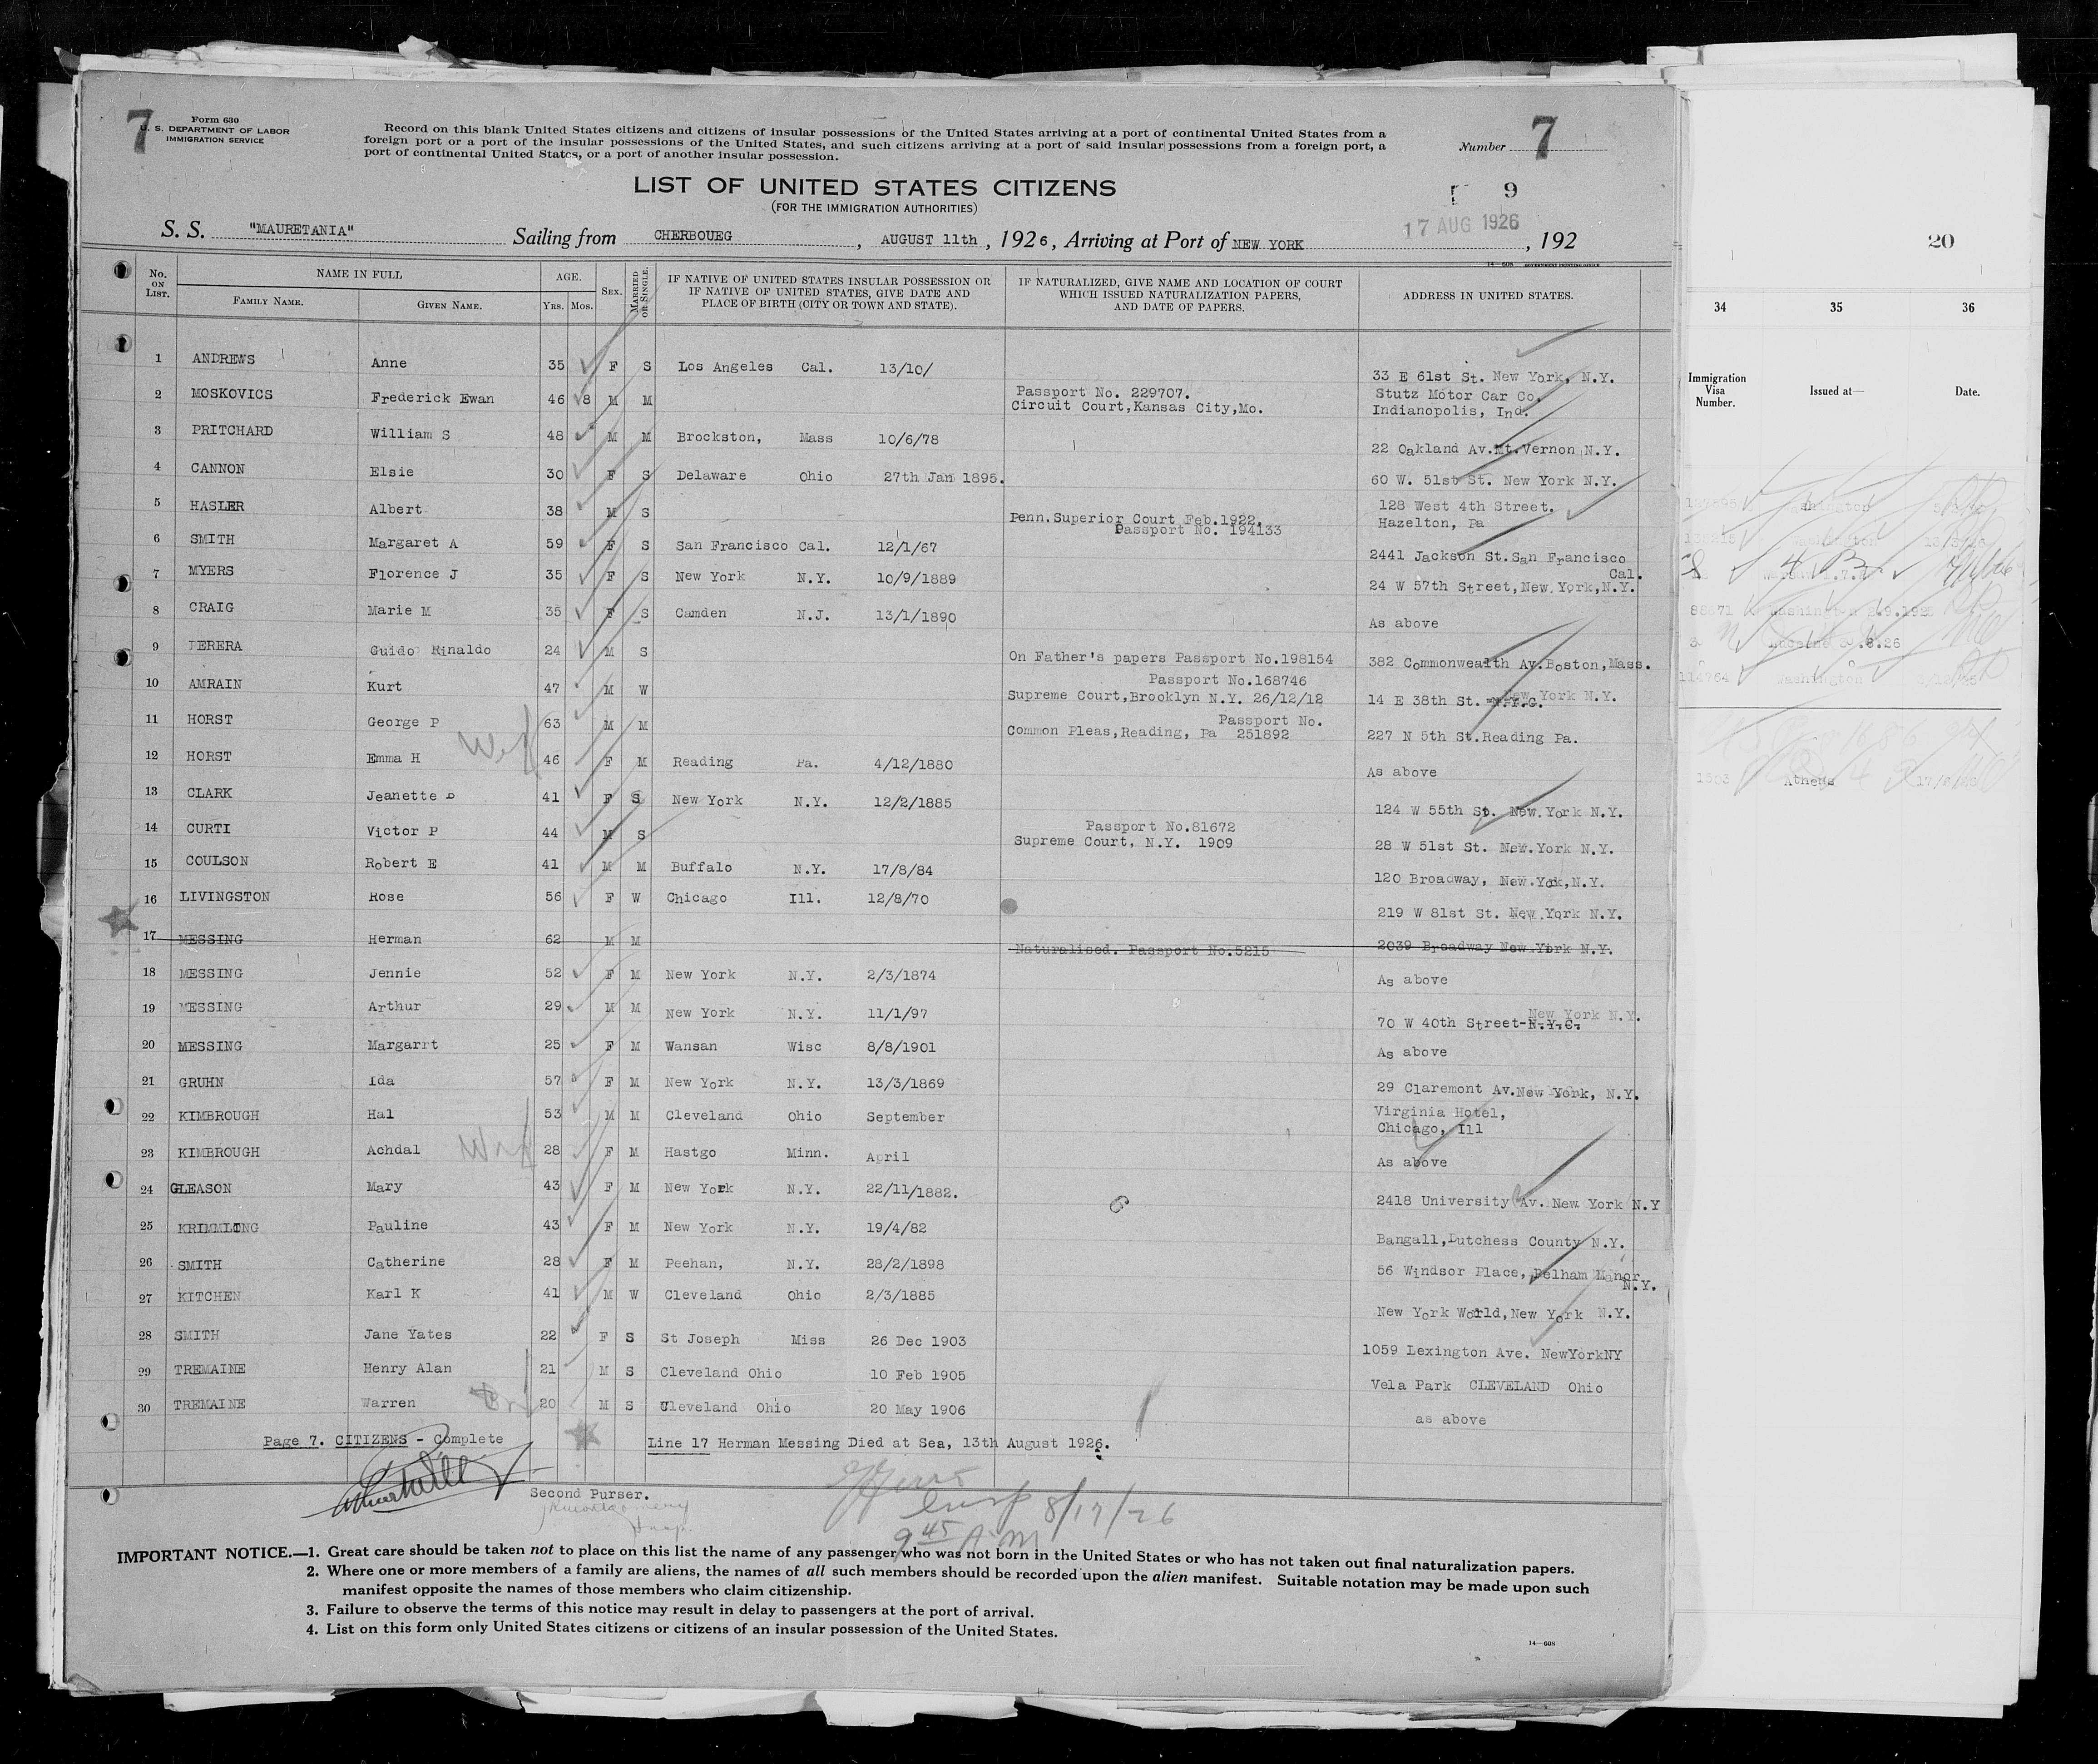 7
Form 630
U. S. DEPARTMENT OF LABOR
IMMIGRATION SERVICE
Record on this blank United States citizens and citizens of insular possessions of the United States arriving at a port of continental United States from a
foreign port or a port of the insular possessions of the United States, and such citizens arriving at a port of said insular possessions from a foreign port, a
port of continental United States, or a port of another insular possession.
Number 7
LIST OF UNITED STATES CITIZENS
(FOR THE IMMIGRATION AUTHORITIES)
9
17 AUG 1926
S. S. "MAURETANIA" Sailing from CHERBOUEG, AUGUST 11th, 1926, Arriving at Port of NEW YORK, 192
14—608 GOVERNMENT PRINTING OFFICE
No. ON LIST. NAME IN FULL FAMILY NAME. GIVEN NAME. AGE. Yrs. Mos. SEX. MARRIED OR SINGLE. IF NATIVE OF UNITED STATES INSULAR POSSESSION OR IF NATIVE OF UNITED STATES, GIVE DATE AND PLACE OF BIRTH (CITY OR TOWN AND STATE). IF NATURALIZED, GIVE NAME AND LOCATION OF COURT WHICH ISSUED NATURALIZATION PAPERS, AND DATE OF PAPERS. ADDRESS IN UNITED STATES.
1 ANDREWS Anne 35 F S Los Angeles Cal. 13/10/ 33 E 61st St. New York, N.Y.
2 MOSKOVICS Frederick Ewan 46 8 M M Passport No. 229707. Circuit Court,Kansas City,Mo. Stutz Motor Car Co. Indianopolis, Ind.
3 PRITCHARD William S 48 M M Brockston, Mass 10/6/78 22 Oakland Av.Mt.Vernon N.Y.
4 CANNON Elsie 30 F S Delaware Ohio 27th Jan 1895. 60 W. 51st St. New York N.Y.
5 HASLER Albert 38 M S Penn.Superior Court Feb.1922. Passport No. 194133 128 West 4th Street. Hazelton, Pa
6 SMITH Margaret A 59 F S San Francisco Cal. 12/1/67 2441 Jackson St.San Francisco Cal.
7 MYERS Florence J 35 F S New York N.Y. 10/9/1889 24 W 57th Street,New York,N.Y.
8 CRAIG Marie M 35 F S Camden N.J. 13/1/1890 As above
9 PERERA Guido Rinaldo 24 M S On Father's papers Passport No.198154 382 Commonwealth Av.Boston,Mass.
10 AMRAIN Kurt 47 M W Passport No.168746 Supreme Court,Brooklyn N.Y. 26/12/12 14 E 38th St. N.Y.C. New York N.Y.
11 HORST George P 63 M M Passport No. Common Pleas,Reading, Pa 251892 227 N 5th St.Reading Pa.
12 HORST Emma H 46 F M Reading Pa. 4/12/1880 As above
13 CLARK Jeanette D 41 F S New York N.Y. 12/2/1885 124 W 55th St. New York N.Y.
14 CURTI Victor P 44 M S Passport No.81672 Supreme Court, N.Y. 1909 28 W 51st St. New York N.Y.
15 COULSON Robert E 41 M M Buffalo N.Y. 17/8/84 120 Broadway, New.York,N.Y.
16 LIVINGSTON Rose 56 F W Chicago Ill. 12/8/70 219 W 81st St. New York N.Y.
17 MESSING Herman 62 M M Naturalised. Passport No.5215 2039 Broadway New York N.Y.
18 MESSING Jennie 52 F M New York N.Y. 2/3/1874 As above
19 MESSING Arthur 29 M M New York N.Y. 11/1/97 70 W 40th Street-N.Y.C. New York N.Y.
20 MESSING Margaret 25 F M Wansan Wisc 8/8/1901 As above
21 GRUHN Ida 57 F M New York N.Y. 13/3/1869 29 Claremont Av.New York, N.Y.
22 KIMBROUGH Hal 53 M M Cleveland Ohio September Virginia Hotel, Chicago, Ill
23 KIMBROUGH Achdal 28 F M Hastgo Minn. April As above
24 GLEASON Mary 43 F M New York N.Y. 22/11/1882. 2418 University Av. New York N.Y
25 KRIMMLING Pauline 43 F M New York N.Y. 19/4/82 Bangall,Dutchess County N.Y.
26 SMITH Catherine 28 F M Peehan, N.Y. 28/2/1898 56 Windsor Place, Pelham Manor N.Y.
27 KITCHEN Karl K 41 M W Cleveland Ohio 2/3/1885 New York World,New York N.Y.
28 SMITH Jane Yates 22 F S St Joseph Miss 26 Dec 1903 1059 Lexington Ave. NewYorkNY
29 TREMAINE Henry Alan 21 M S Cleveland Ohio 10 Feb 1905 Vela Park CLEVELAND Ohio
30 TREMAINE Warren 20 M S Cleveland Ohio 20 May 1906 as above
Page 7. CITIZENS - Complete
Line 17 Herman Messing Died at Sea, 13th August 1926.
Second Purser.
Insp 8/17/26
9 45 A.M
IMPORTANT NOTICE.—1. Great care should be taken not to place on this list the name of any passenger who was not born in the United States or who has not taken out final naturalization papers.
2. Where one or more members of a family are aliens, the names of all such members should be recorded upon the alien manifest. Suitable notation may be made upon such
manifest opposite the names of those members who claim citizenship.
3. Failure to observe the terms of this notice may result in delay to passengers at the port of arrival.
4. List on this form only United States citizens or citizens of an insular possession of the United States.
14—608
20
34 35 36
Immigration Visa Number. Issued at— Date.
Athens